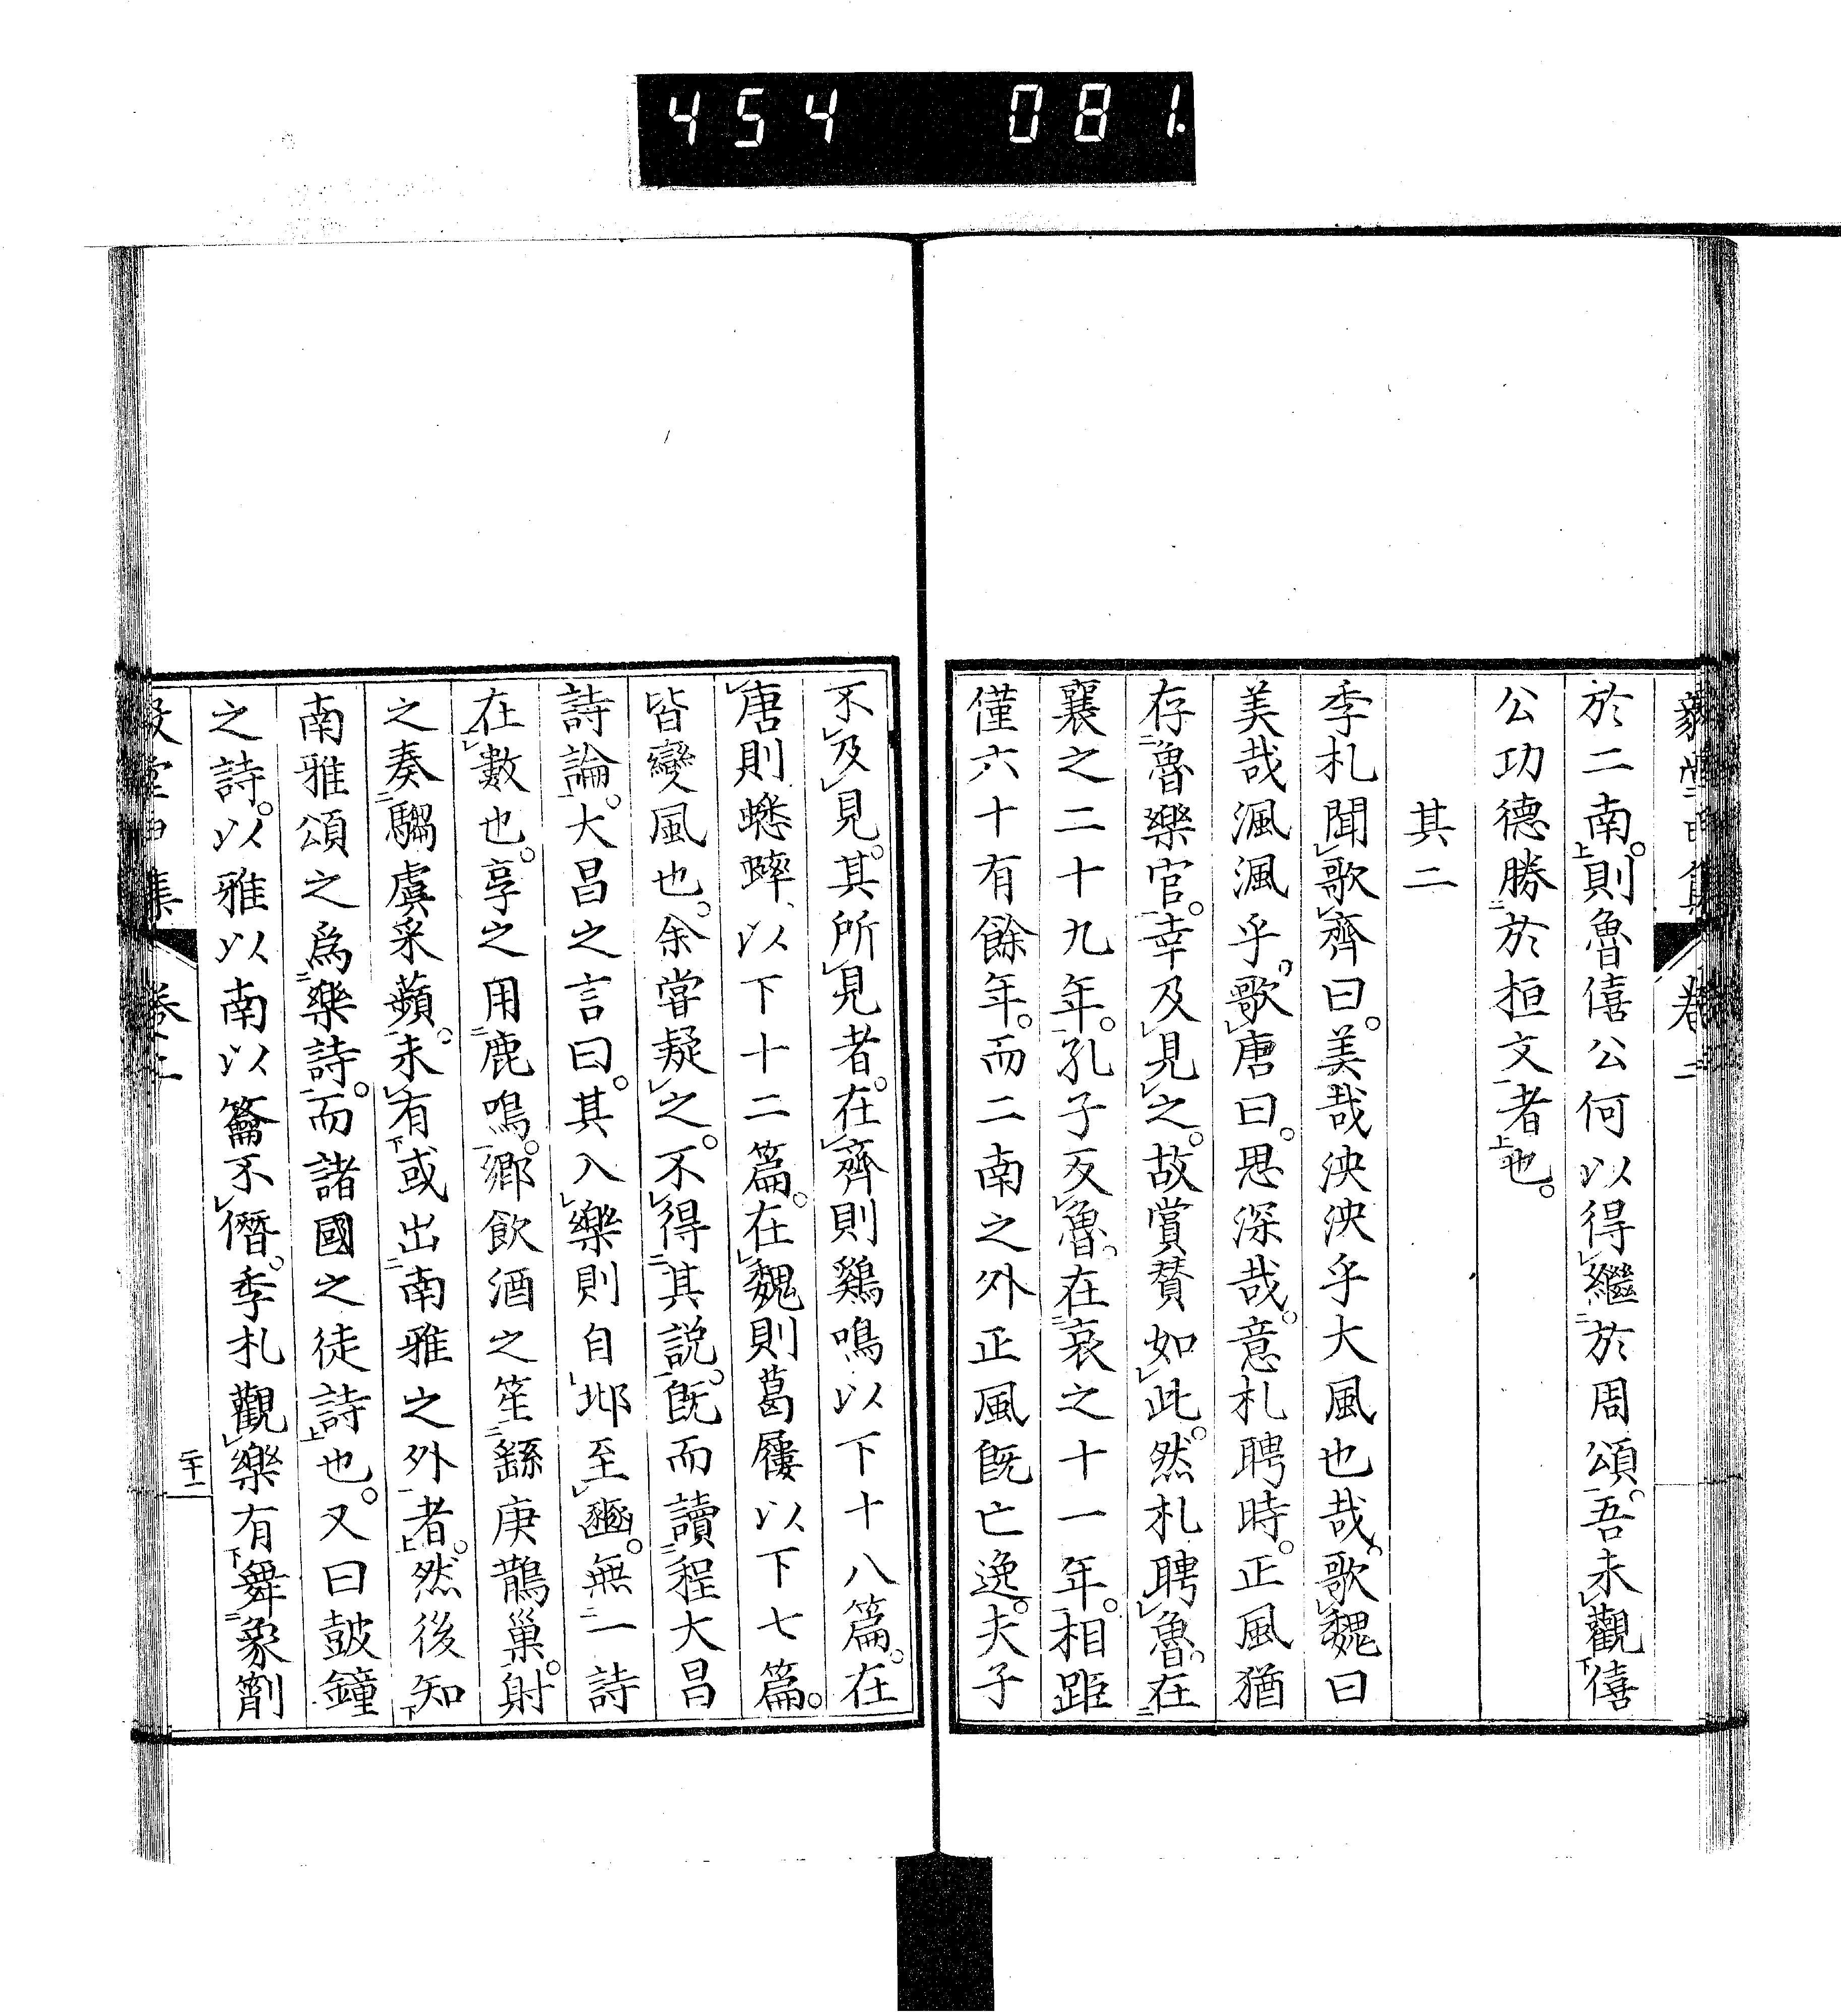 454 081.
於二南。則魯僖公何以得繼於周頌。吾未觀僖
公功德勝於桓文者也。
其二
季札聞歌齊曰。美哉泱泱乎大風也哉。歌魏曰
美哉渢渢乎。歌唐曰。思深哉。意札聘時。正風猶
存魯樂官。幸及見之。故賞賛如此。然札聘魯。在
襄之二十九年。孔子反魯。在哀之十一年。相距
僅六十有餘年。而二南之外正風既亡逸。夫子
不及見。其所見者。在齊則鷄鳴以下十八篇。在
唐則蟋蟀以下十二篇。在魏則葛屨以下七篇。
皆變風也。余嘗疑之。不得其說。既而讀程大昌
詩論。大昌之言曰。其入樂則自邶至豳。無一詩
在數也。享之用鹿鳴。鄉飲酒之笙繇庚鵲巢。射
之奏騶虞采蘋。未有或出南雅之外者。然後知
南雅頌之爲樂詩。而諸國之徒詩也。又曰鼓鐘
之詩。以雅以南以籥不僭。季札觀樂有舞象箾
二十一